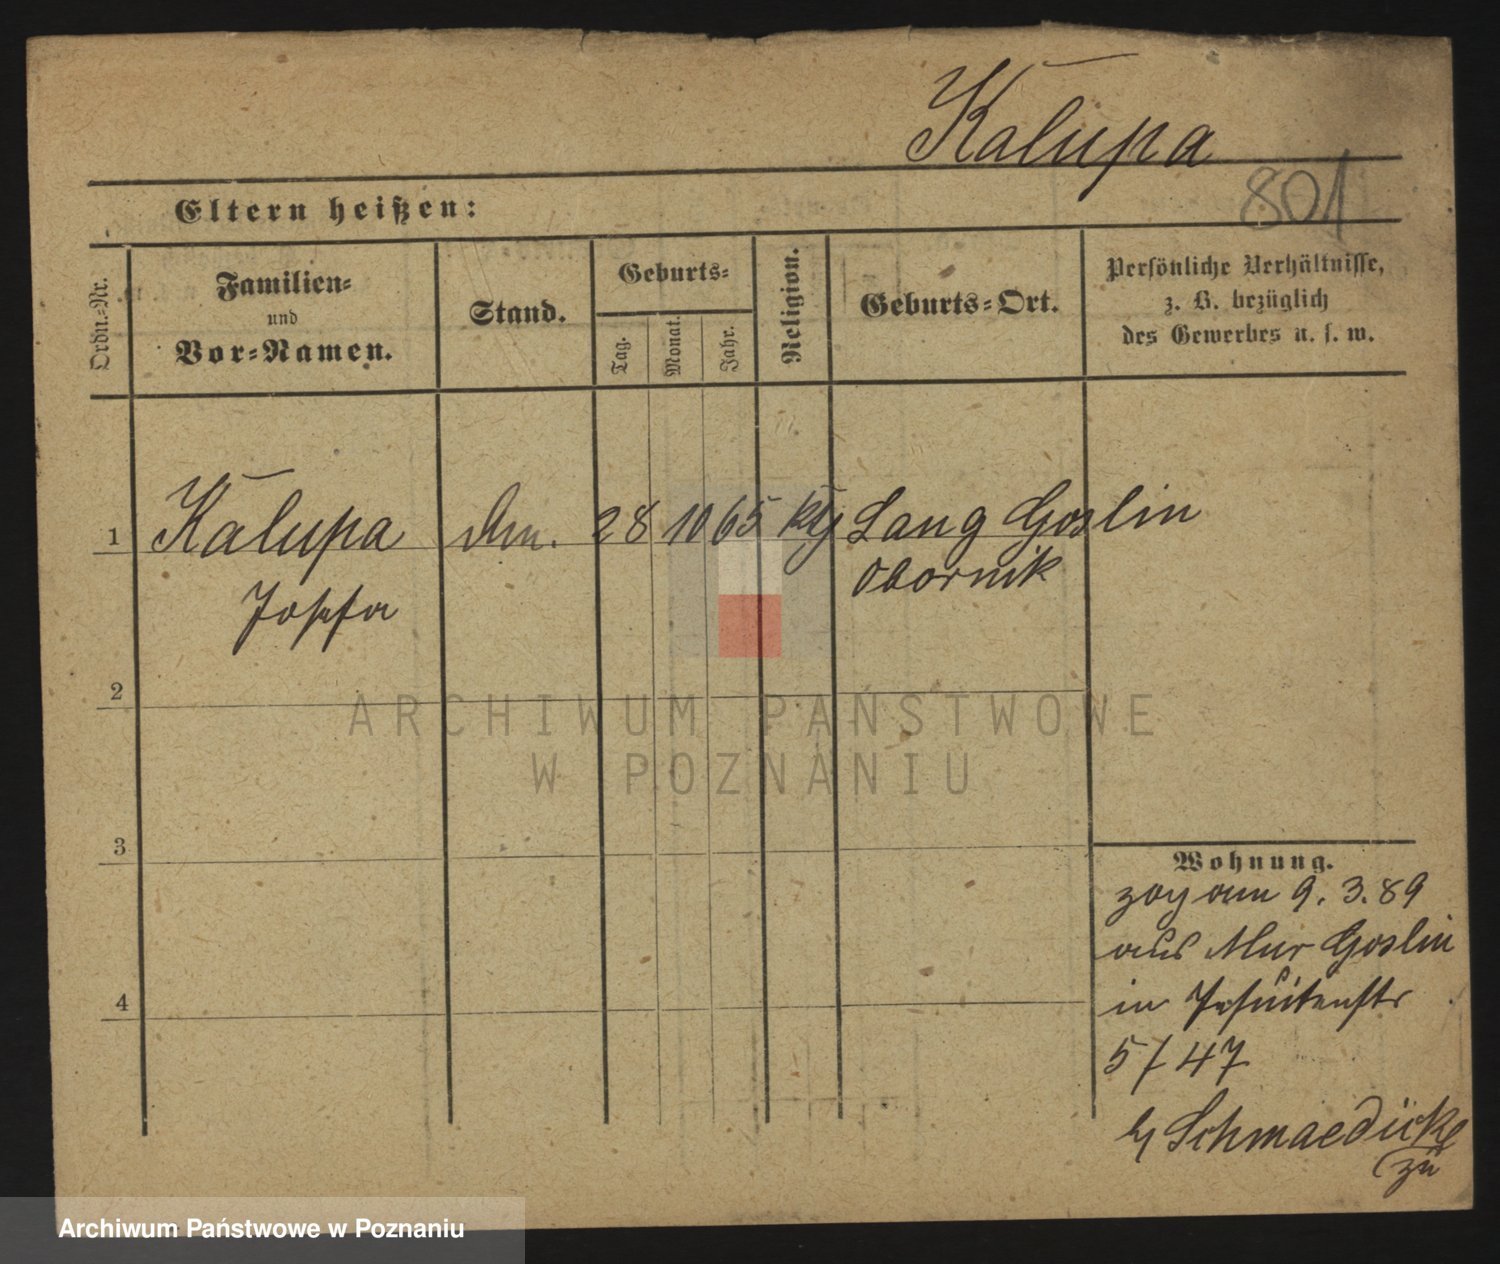 Kalupa
801
Eltern heißen:
Ordn.-Nr.
Familien-
und
Vor-Namen.
Stand.
Geburts-
Tag.
Monat.
Jahr.
Religion.
Geburts-Ort.
Persönliche Verhältnisse,
z. B. bezüglich
des Gewerbes u. s. w.
1 Kalupa 28 10 65 Lang Goslin
Josefa Obornik
2
3
4
Wohnung.
zog am 9. 3. 89
aus Mur Goslin
in Jesuitenstr
5/47
Schmaedicke
zu
ARCHIWUM PAŃSTWOWE
W POZNANIU
Archiwum Państwowe w Poznaniu